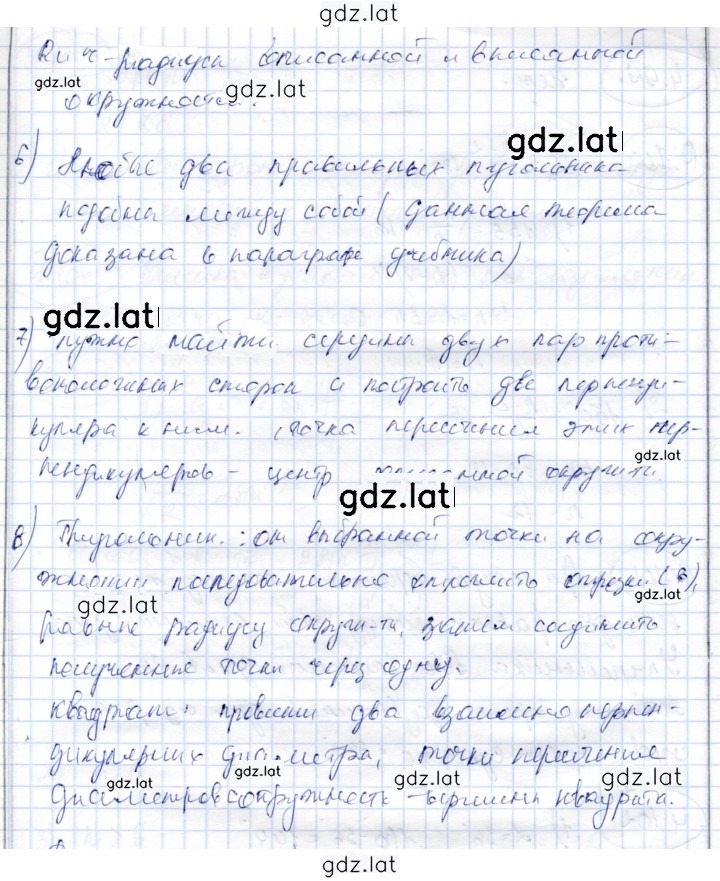 gdz.lat
R и r - радиусы описанной и вписанной
gdz.lat
окружностей.
gdz.lat
gdz.lat
6) Любые два правильных n-угольника
подобны между собой (данная теорема
доказана в параграфе учебника)
gdz.lat
7) нужно найти середины двух пар проти-
воположных сторон и построить две перпенди-
куляра к ним. Точка пересечения этих пер-
gdz.lat
пендикуляров - центр окружности
gdz.lat
8) : от выбранной точки на окру-
жности последовательно отрезки (6),
gdz.lat
gdz.lat
равные радиусу окруж-ти, затем соединить
полученные точки через одну.
Квадрат: провести два взаимно перпен-
дикулярных диаметра, точки пересечения
gdz.lat
gdz.lat
gdz.lat
диаметров с окружность - вершины квадрата.
gdz.lat